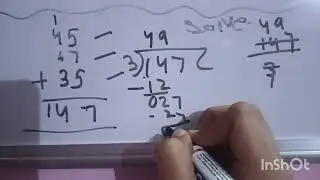 1
45
47
+ 35
147
49
3)147(
-12
027
-27
Same
49
147
3
InShOt